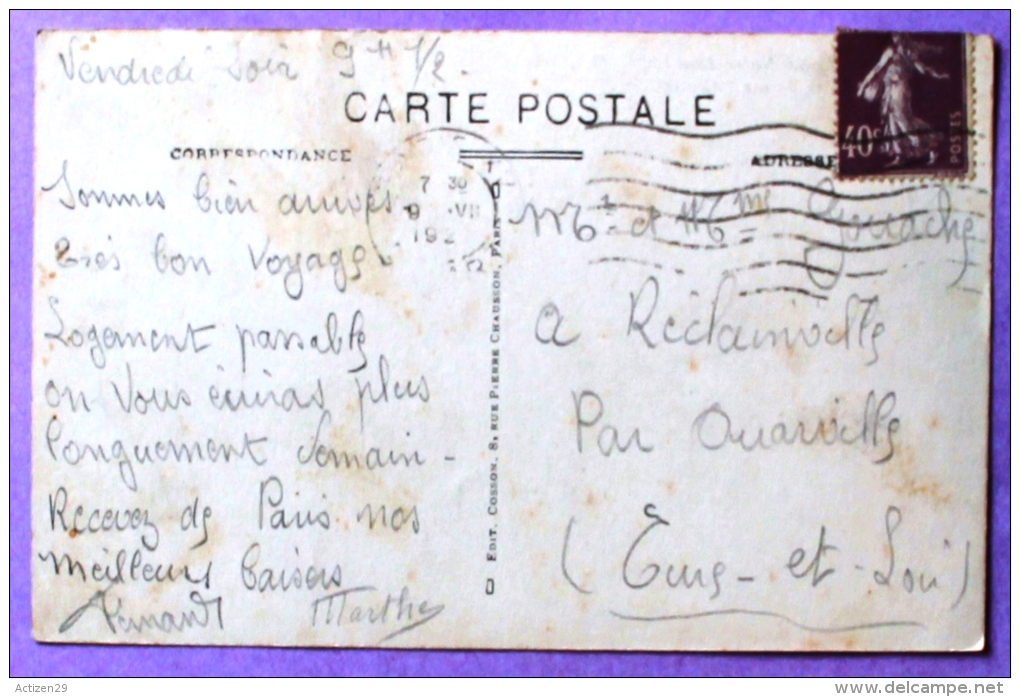 Vendredi Soir 9 H 1/2.
CARTE POSTALE
CORRESPONDANCE
ADRESSE
40c
POSTES
7 30
9 VII
192
Sommes bien arrivés
très bon Voyage
Logement passable
on Vous écriras plus
longuement demain -
Recevez de Paris nos
Meilleurs baisers
Fernand Marthe
EDIT. COSSON, 8, RUE PIERRE CHAUSSON, PARIS
Mr et Mme Gouache
a Réclainville
Par Ouarville
(Eure-et-Loir)
Actizen29
www.delcampe.net